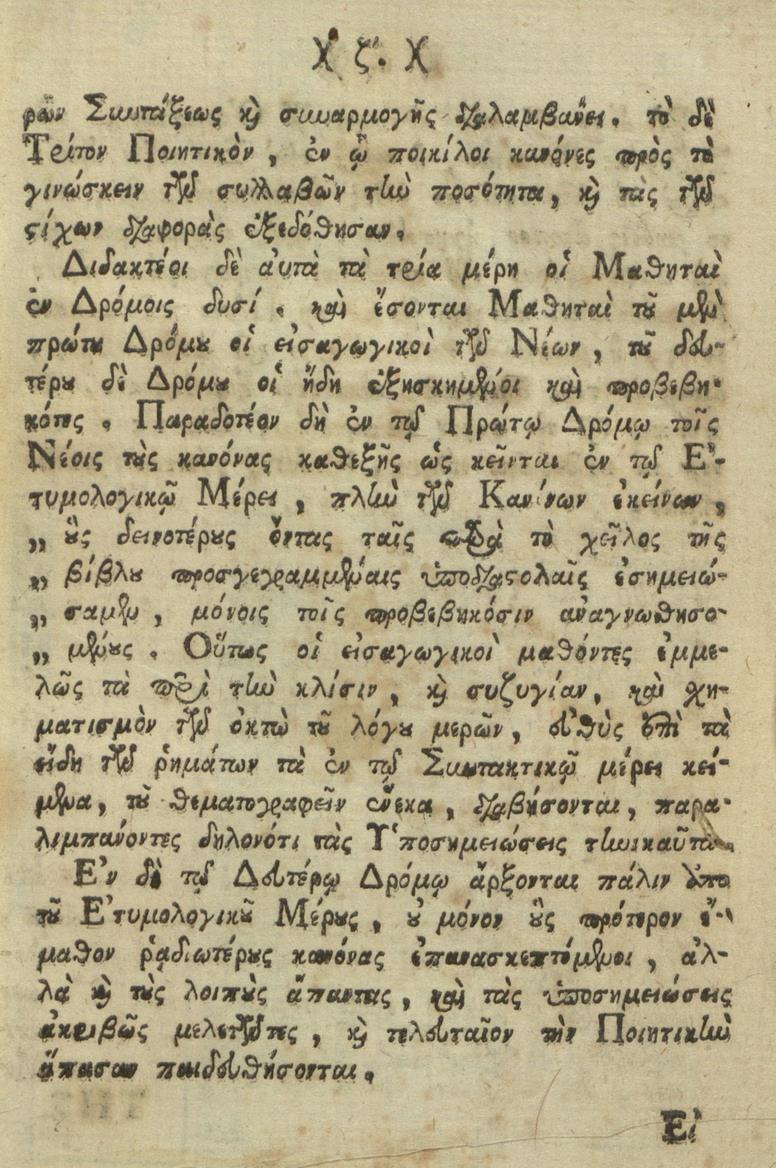 )( ζʹ. )(
ρῶν Συντάξεως καὶ συναρμογῆς διαλαμβάνει. τὸ δὲ
Τρίτον Ποιητικὸν, ἐν ᾧ ποικίλοι κανόνες πρὸς τὸ
γινώσκειν τῶν συλλαβῶν τὴν ποσότητα, καὶ τὰς τῶν
στίχων διαφορὰς ἐξεδόθησαν.
Διδακτέοι δὲ αὐτὰ τὰ τρία μέρη οἱ Μαθηταὶ
ἐν Δρόμοις δυσί. καὶ ἔσονται Μαθηταὶ τοῦ μὲν
πρώτου Δρόμου οἱ εἰσαγωγικοὶ τῶν Νέων, τοῦ δευ-
τέρου δὲ Δρόμου οἱ ἤδη ἐξησκημένοι καὶ προβεβη-
κότες. Παραδοτέον δὴ ἐν τῷ Πρώτῳ Δρόμῳ τοῖς
Νέοις τοὺς κανόνας καθεξῆς ὡς κεῖνται ἐν τῷ Ἐ-
τυμολογικῷ Μέρει, πλὴν τῶν Κανόνων ἐκείνων,
„ οὓς δεινοτέρους ὄντας ταῖς παρὰ τὸ χεῖλος τῆς
„ βίβλου προσγεγραμμέναις ὑποδιαστολαῖς ἐσημειώ-
„ σαμεν, μόνοις τοῖς προβεβηκόσιν ἀναγνωσθησο-
„ μένους. Οὕτως οἱ εἰσαγωγικοὶ μαθόντες ἐμμε-
λῶς τὰ περὶ τὴν κλίσιν, καὶ συζυγίαν, καὶ χη-
ματισμὸν τῶν ὀκτὼ τοῦ λόγου μερῶν, εὐθὺς ἐπὶ τὰ
εἴδη τῶν ῥημάτων τὰ ἐν τῷ Συντακτικῷ μέρει κεί-
μενα, τοῦ θεματογραφεῖν ἕνεκα, διαβήσονται, παρα-
λιμπάνοντες δηλονότι τὰς Ὑποσημειώσεις τηνικαῦτα.
Ἐν δὲ τῷ Δευτέρῳ Δρόμῳ ἄρξονται πάλιν ἀπὸ
τοῦ Ἐτυμολογικοῦ Μέρους, οὐ μόνον οὓς πρότερον ἔ-
μαθον ῥαδιωτέρους κανόνας ἐπανασκεπτόμενοι, ἀλ-
λὰ καὶ τοὺς λοιποὺς ἅπαντας, καὶ τὰς ὑποσημειώσεις
ἀκριβῶς μελετῶντες, καὶ τελευταῖον τὴν Ποιητικὴν
ἅπασαν παιδευθήσονται.
Εἰ